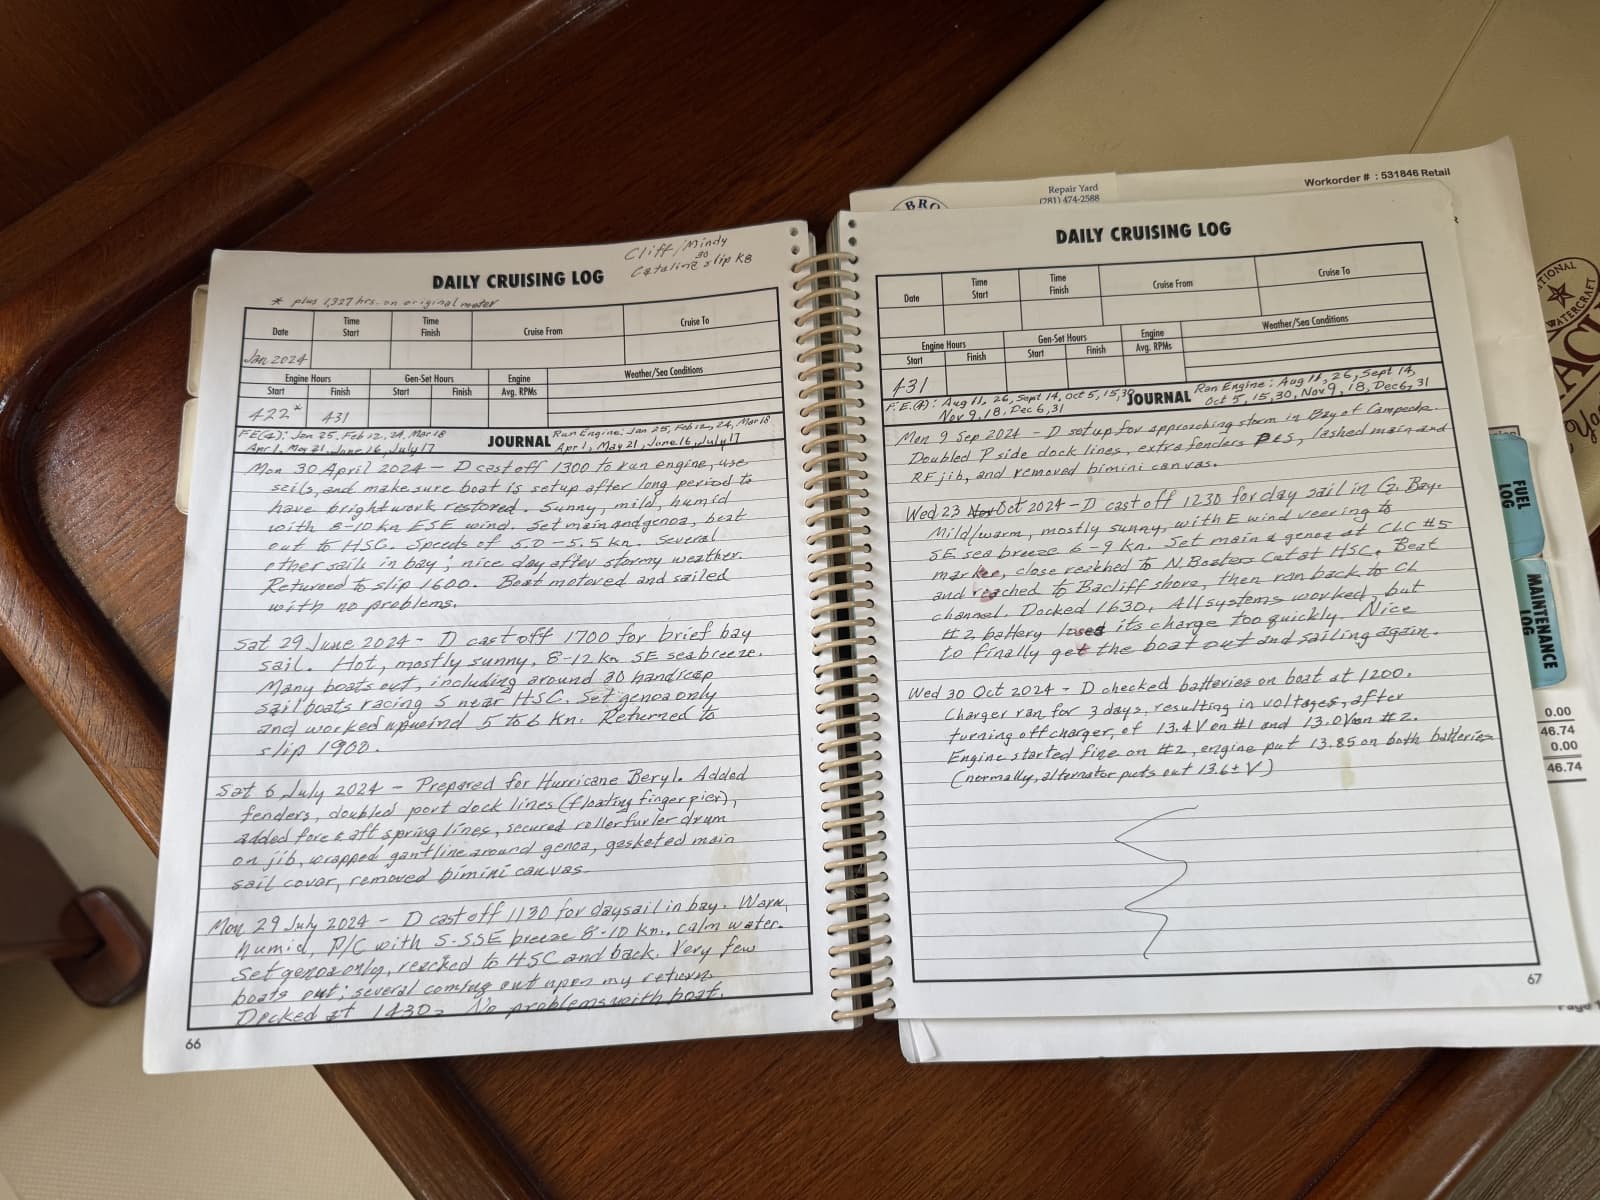 Cliff/Mindy
Catalina 30 slip K8
DAILY CRUISING LOG
* plus 1,327 hrs. on original meter
Date
Time Start
Time Finish
Cruise From
Cruise To
Jan 2024
Engine Hours
Gen-Set Hours
Engine Avg. RPMs
Weather/Sea Conditions
Start
Finish
Start
Finish
422*
431
FE(4): Jan 25, Feb 12, 24, Mar 18
Apr 1, May 21, June 16, July 17
JOURNAL
Ran Engine: Jan 25, Feb 12, 24, Mar 18
Apr 1, May 21, June 16, July 17
Mon 30 April 2024 - D cast off 1300 to run engine, use
sails, and make sure boat is setup after long period to
have brightwork restored. Sunny, mild, humid
with 8-10 kn ESE wind. Set main and genoa, beat
out to HSC. Speeds of 5.0 - 5.5 kn. Several
other sails in bay; nice day after stormy weather.
Returned to slip 1600. Boat motored and sailed
with no problems.
Sat 29 June 2024 - D cast off 1700 for brief bay
sail. Hot, mostly sunny, 8-12 kn SE seabreeze.
Many boats out, including around 20 handicap
sailboats racing S near HSC. Set genoa only
and worked upwind 5 to 6 kn. Returned to
slip 1900.
Sat 6 July 2024 - Prepared for Hurricane Beryl. Added
fenders, doubled port dock lines (floating finger pier),
added fore & aft spring lines, secured roller furler drum
on jib, wrapped gantline around genoa, gasketed main
sail cover, removed bimini canvas.
Mon 29 July 2024 - D cast off 1130 for daysail in bay. Warm,
humid, P/C with S-SSE breeze 8-10 kn., calm water.
Set genoa only, reached to HSC and back. Very few
boats out; several coming out upon my return.
Docked at 1430. No problems with boat.
66
BRO
Repair Yard
(281) 474-2588
Workorder # : 531846 Retail
DAILY CRUISING LOG
Date
Time Start
Time Finish
Cruise From
Cruise To
Engine Hours
Gen-Set Hours
Engine Avg. RPMs
Weather/Sea Conditions
Start
Finish
Start
Finish
431
F.E.(4): Aug 11, 26, Sept 14, Oct 5, 15, 30
Nov 9, 18, Dec 6, 31
JOURNAL
Ran Engine: Aug 11, 26, Sept 14,
Oct 5, 15, 30, Nov 9, 18, Dec 6, 31
Mon 9 Sep 2024 - D setup for approaching storm in Bay of Campeche.
Doubled P side dock lines, extra fenders P&S, lashed main and
RF jib, and removed bimini canvas.
Wed 23 Nov Oct 2024 - D cast off 1230 for day sail in G. Bay.
Mild/warm, mostly sunny, with E wind veering to
SE sea breeze 6-9 kn. Set main & genoa at CLC #5
marker, close reached to N. Boaters Cut at HSC. Beat
and reached to Bacliff shore, then ran back to CL
channel. Docked 1630. All systems worked, but
#2 battery loses its charge too quickly. Nice
to finally get the boat out and sailing again.
Wed 30 Oct 2024 - D checked batteries on boat at 1200.
Charger ran for 3 days, resulting in voltages, after
turning off charger, of 13.4V on #1 and 13.0V on #2.
Engine started fine on #2, engine put 13.85 on both batteries
(normally, alternator puts out 13.6± V)
67
FUEL LOG
MAINTENANCE LOG
WATERCRAFT
0.00
46.74
0.00
46.74